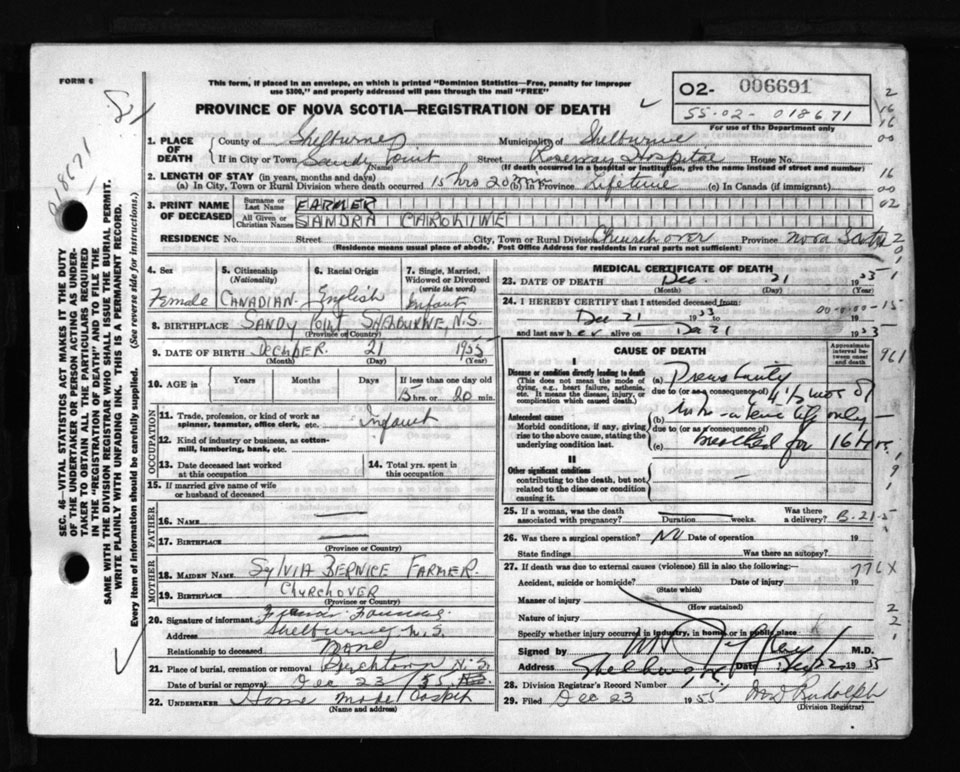 FORM 6
This form, if placed in an envelope, on which is printed "Dominion Statistics—Free, penalty for improper
use $300," and property addressed will pass through the mail "FREE"
PROVINCE OF NOVA SCOTIA—REGISTRATION OF DEATH
O2- 006691
55-02- 018671
For use of the Department only
018671
SEC. 46—VITAL STATISTICS ACT MAKES IT THE DUTY
OF THE UNDERTAKER OR PERSON ACTING AS UNDER-
TAKER TO OBTAIN ALL THE PARTICULARS REQUIRED
IN THE "REGISTRATION OF DEATH" AND TO FILE THE
SAME WITH THE DIVISION REGISTRAR WHO SHALL ISSUE THE BURIAL PERMIT.
WRITE PLAINLY WITH UNFADING INK. THIS IS A PERMANENT RECORD.
Every item of information should be carefully supplied. (See reverse side for instructions.)
1. PLACE OF DEATH County of Shelburne Municipality of Shelburne
If in City or Town Sandy Point Street Roseway Hospital House No.
(Name) (If death occurred in a hospital or institution, give the name instead of street and number)
2. LENGTH OF STAY (in years, months and days)
(a) In City, Town or Rural Division where death occurred 15 hrs 20 min (b) In Province Lifetime (c) In Canada (if immigrant)
3. PRINT NAME OF DECEASED Surname or Last Name FARMER
All Given or Christian Names SANDRA CAROLINE
RESIDENCE No. Street City, Town or Rural Division Churchover Province Nova Scotia
(Residence means usual place of abode. Post Office Address for residents in rural parts not sufficient)
4. Sex Female
5. Citizenship (Nationality) CANADIAN
6. Racial Origin English
7. Single, Married, Widowed or Divorced (write the word) Infant
8. BIRTHPLACE SANDY POINT SHELBURNE, N.S.
(Province or Country)
9. DATE OF BIRTH DECEMBER 21 1955
(Month) (Day) (Year)
10. AGE in Years Months Days If less than one day old
15 hrs. or 20 min.
OCCUPATION
11. Trade, profession, or kind of work as spinner, teamster, office clerk, etc. Infant
12. Kind of industry or business, as cotton-mill, lumbering, bank, etc.
13. Date deceased last worked at this occupation
14. Total yrs. spent in this occupation
15. If married give name of wife or husband of deceased
FATHER
16. NAME —
17. BIRTHPLACE —
(Province or Country)
MOTHER
18. MAIDEN NAME SYLVIA BERNICE FARMER.
19. BIRTHPLACE CHURCHOVER
(Province or Country)
20. Signature of informant
Address Shelburne N.S.
Relationship to deceased None
21. Place of burial, cremation or removal Birchtown N.S.
Date of burial or removal Dec 23/55
22. UNDERTAKER Home made Casket
(Name and address)
MEDICAL CERTIFICATE OF DEATH
23. DATE OF DEATH Dec. 21 1955
(Month) (Day) (Year)
24. I HEREBY CERTIFY that I attended deceased from:
Dec 21 1955 to 19
and last saw her alive on Dec 21 1955
CAUSE OF DEATH
Approximate interval between onset and death
I
Disease or condition directly leading to death
(This does not mean the mode of dying, e.g., heart failure, asthenia, etc. It means the disease, injury, or complication which caused death.)
(a) Prematurity
due to (or as a consequence of) 4 1/2 mos of
Antecedent causes
Morbid conditions, if any, giving rise to the above cause, stating the underlying condition last.
(b) intra-uterine life only
due to (or as a consequence of)
(c) breathed for 16 hrs.
II
Other significant conditions
contributing to the death, but not related to the disease or condition causing it. —
25. If a woman, was the death associated with pregnancy? Duration weeks. Was there a delivery? B-21-5
26. Was there a surgical operation? No Date of operation 19
State findings Was there an autopsy?
27. If death was due to external causes (violence) fill in also the following:— 776X
Accident, suicide or homicide? Date of injury 19
(State which)
Manner of injury
(How sustained)
Nature of injury
Specify whether injury occurred in industry, in home or in public place
Signed by M.D.
Address Shelburne Date Dec/22 1955
28. Division Registrar's Record Number
29. Filed Dec 23 1955 Rudolph
(Division Registrar)